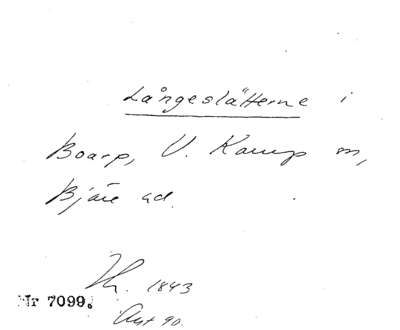 Långeslätterne i
Boarp, V. Karup sn,
Bjäre hd.
1843
Nr 7099.
Avst 90.